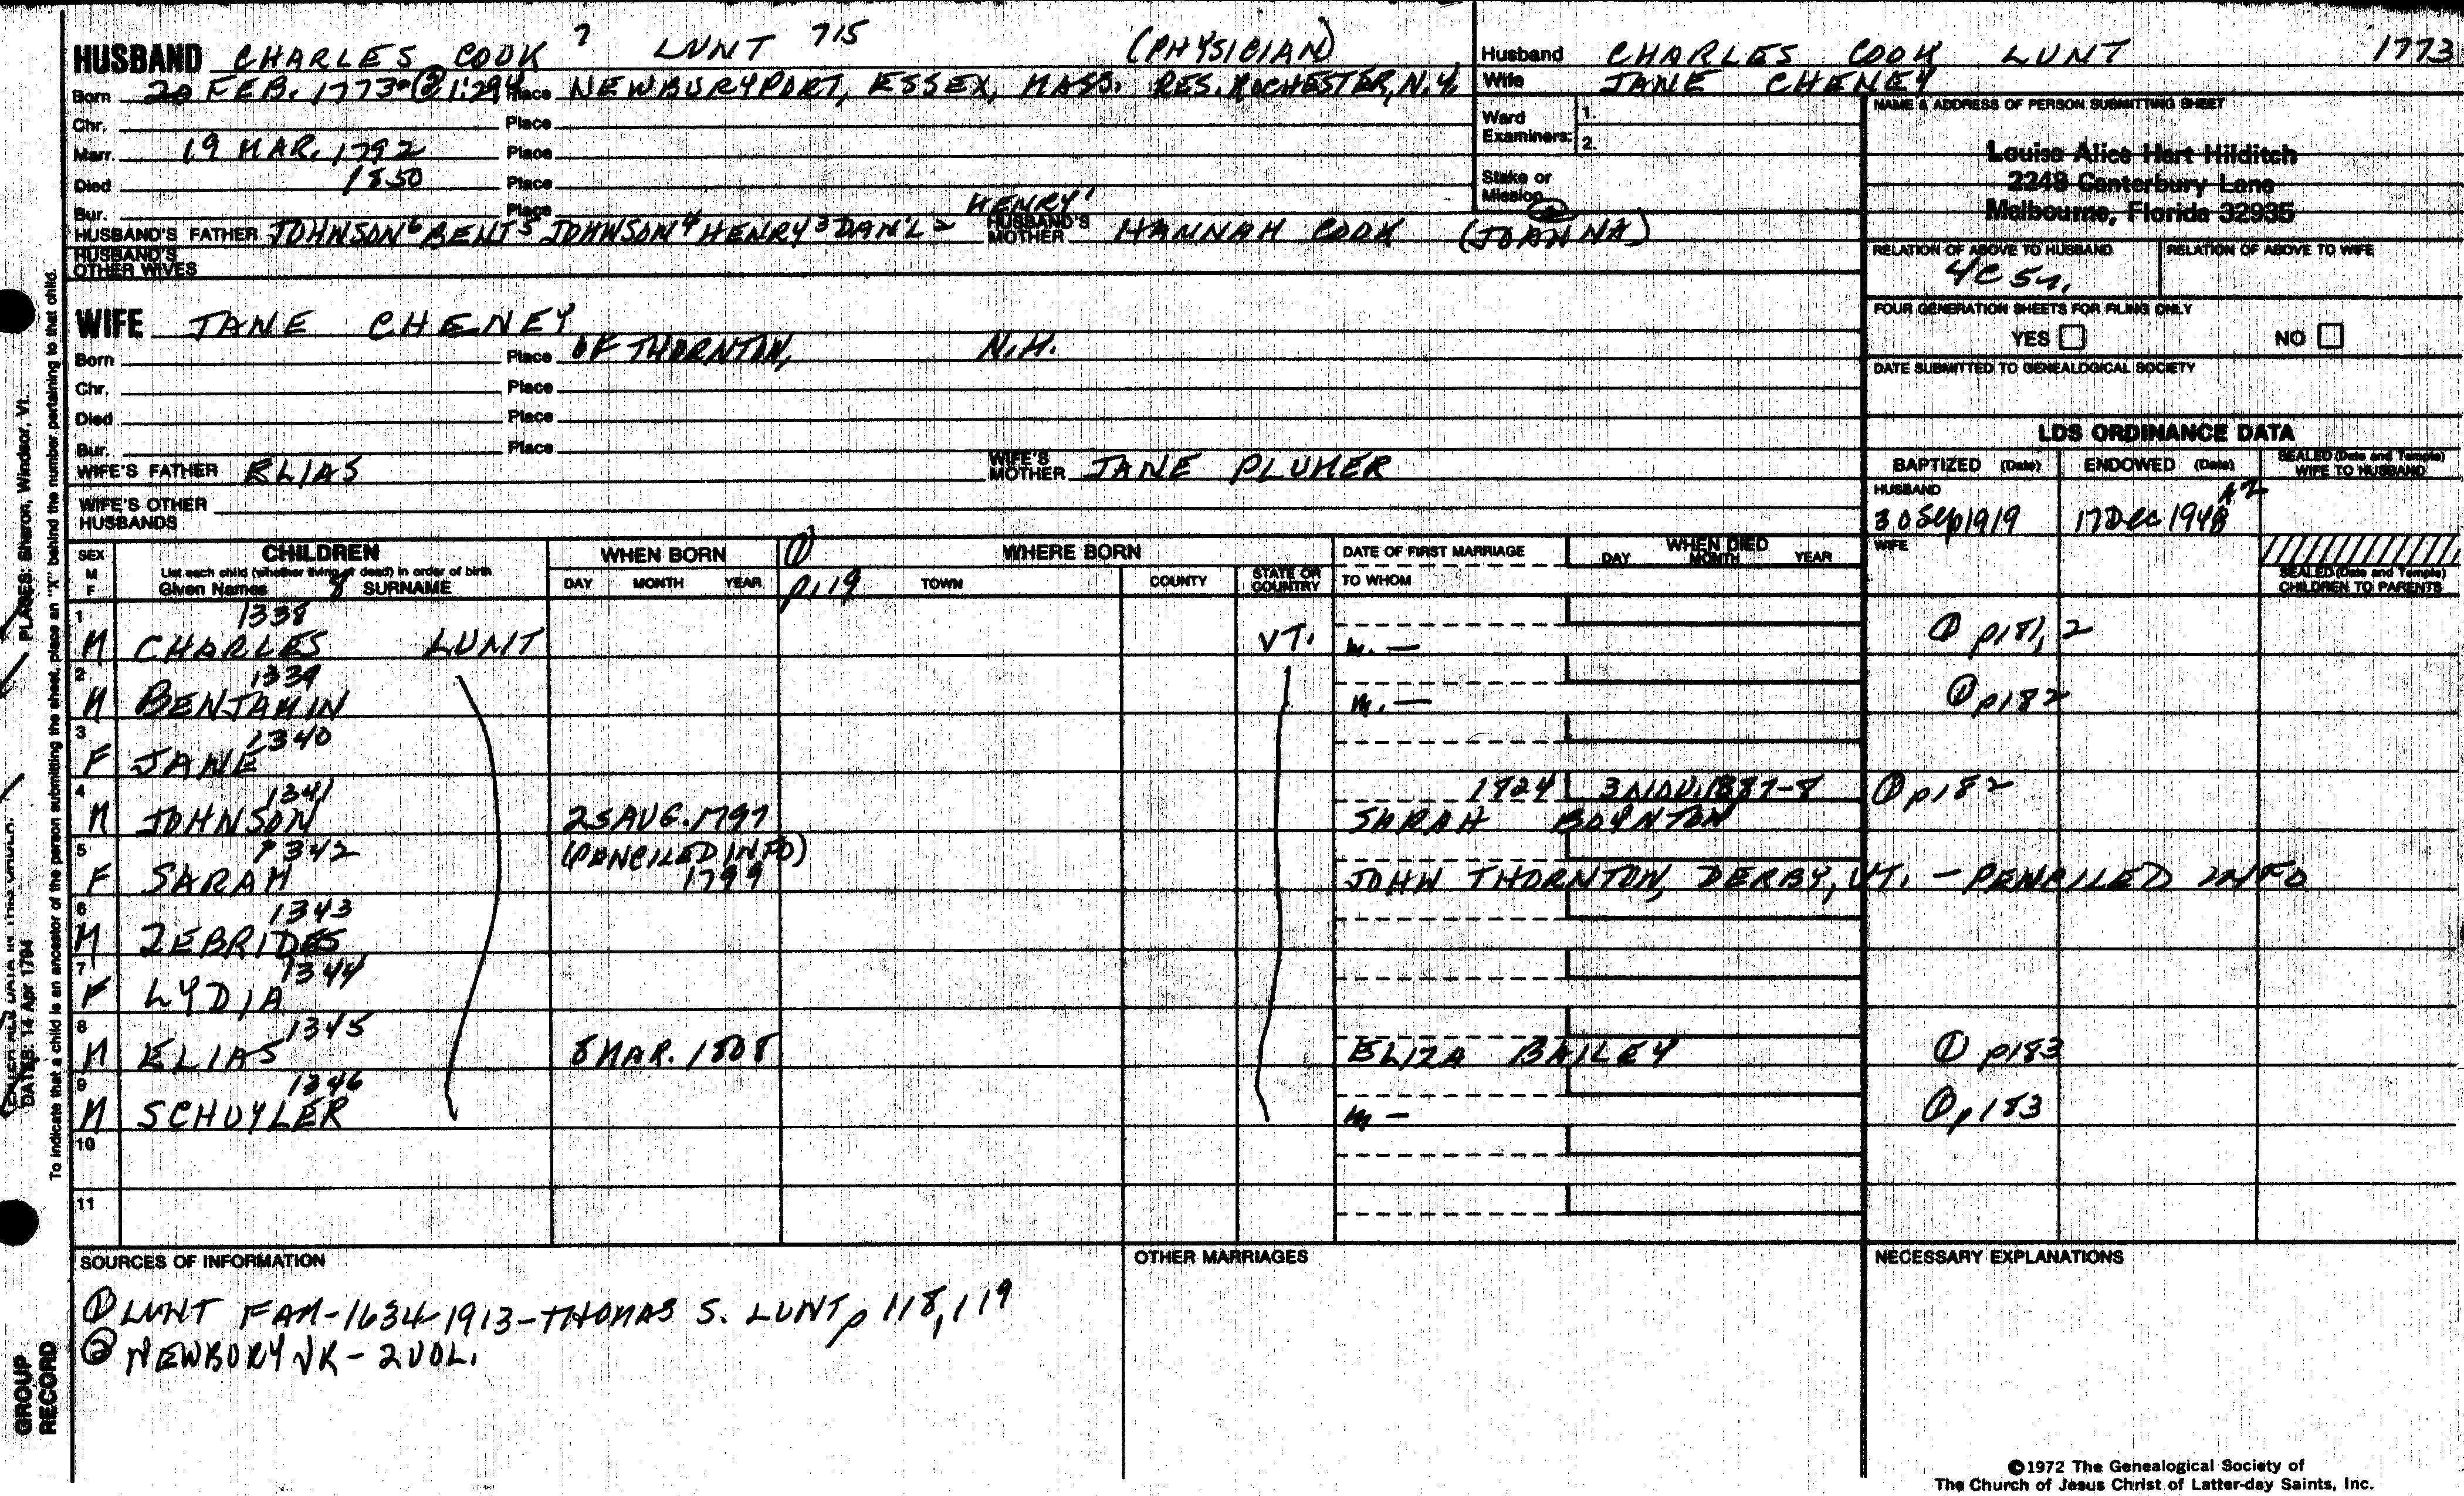 HUSBAND CHARLES COOK 7 LUNT 715 (PHYSICIAN)
Born 20 FEB. 1773 ② 1:294 Place NEWBURYPORT, ESSEX, MASS. RES. ROCHESTER, N.Y.
Chr. Place
Marr. 19 MAR. 1792 Place
Died 1850 Place
Bur. Place
HUSBAND'S FATHER JOHNSON 6 BENJ 5 JOHNSON 4 HENRY 3 DAN'L 2 HENRY 1 HUSBAND'S MOTHER HANNAH COOK (JOANNA) ②
HUSBAND'S OTHER WIVES
Husband CHARLES COOK LUNT 1773
Wife JANE CHENEY
Ward Examiners: 1.
2.
Stake or Mission
NAME & ADDRESS OF PERSON SUBMITTING SHEET
Louise Alice Hart Hilditch
2248 Canterbury Lane
Melbourne, Florida 32935
RELATION OF ABOVE TO HUSBAND RELATION OF ABOVE TO WIFE
4C 5r.
FOUR GENERATION SHEETS FOR FILING ONLY
YES NO
DATE SUBMITTED TO GENEALOGICAL SOCIETY
WIFE JANE CHENEY
Born Place OF THORNTON, N.H.
Chr. Place
Died Place
Bur. Place
WIFE'S FATHER ELIAS WIFE'S MOTHER JANE PLUMER
WIFE'S OTHER HUSBANDS
LDS ORDINANCE DATA
BAPTIZED (Date) ENDOWED (Date) SEALED (Date and Temple) WIFE TO HUSBAND
HUSBAND
30 Sep 1919 17 Dec 1948 AZ
WIFE
SEALED (Date and Temple) CHILDREN TO PARENTS
SEX M F
CHILDREN
List each child (whether living or dead) in order of birth
Given Names 8 SURNAME
WHEN BORN
DAY MONTH YEAR
① p119
WHERE BORN
TOWN COUNTY STATE OR COUNTRY
DATE OF FIRST MARRIAGE
TO WHOM
WHEN DIED
DAY MONTH YEAR
1 1338
M CHARLES LUNT VT. m. — ① p181, 2
2 1339
M BENJAMIN m. — ① p182
3 1340
F JANE
4 1341 1824 3 NOV. 1887-8 ① p182
M JOHNSON 25 AUG. 1797 SARAH BOYNTON
5 1342 (PENCILED INFO)
F SARAH 1799 JOHN THORNTON, DERBY, VT. - PENCILED INFO
6 1343
M ZEBRIDES
7 1344
F LYDIA
8 1345
M ELIAS 8 MAR. 1808 ELIZA BAILEY ① p183
9 1346
M SCHUYLER m — ① p183
10
11
SOURCES OF INFORMATION
① LUNT FAM-1634-1913-THOMAS S. LUNT p 118, 119
② NEWBURY VR - 2 VOL.
OTHER MARRIAGES
NECESSARY EXPLANATIONS
©1972 The Genealogical Society of
The Church of Jesus Christ of Latter-day Saints, Inc.
PLACES: Sharon, Windsor, Vt.
To indicate that a child is an ancestor of the person submitting the sheet, place an "X" behind the number pertaining to that child.
DATES: 14 Apr 1794
GROUP RECORD